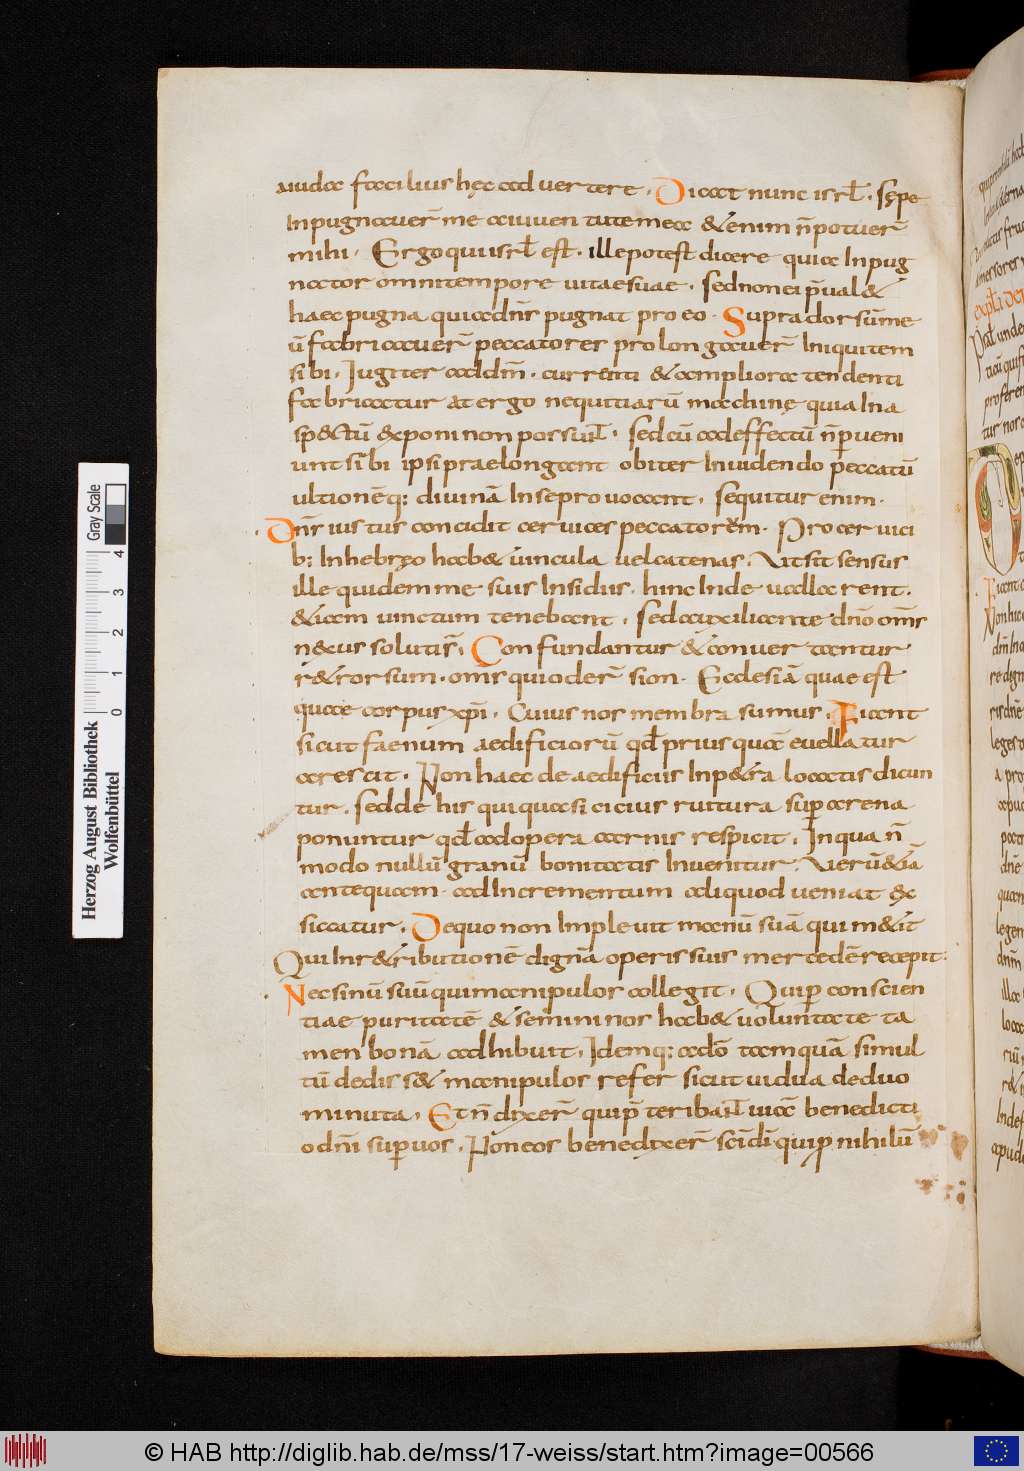 aiudae facilius hęc advertere. Dicat nunc isrƚ. sępe
Inpugnaver̄ me a iuventute mea & enim n̄ potuer̄
mihi. Ergo qui isrƚ est. ille potest dicere quia Inpug
nator omni tempore vitae suae. sed non ei p̄val&
haec pugna quia dn̄s pugnat pro eo. Supra dorsū me
ū fabricaver̄ peccatores prolongaver̄ Iniquitem
sibi. Jugiter ad dm̄. currenti & ampliora tendenti
fabricatur at ergo nequitiarū machinę quia Ina
sp&tū exponi non possunt. sed cū ad effectū n̄ pveni
unt sibi ipsi praelongant obiter Invidendo peccatū
ultionēq: divinā In se provocant. sequitur enim.
Dn̄s iustus concidit cervices peccatorēm. Pro cervici
b: In hebręo hab& vincula vel catenas. Ut sit sensus
ille quidem me suis Insidiis. hinc Inde vallarent.
& iam vinctum tenebant. sed auxiliante dn̄o om̄s
nexus solutis̄. Confundantur & convertantur
r&rorsum. om̄s qui oder̄ sion. Ecclesiā quae est
quae corpus xp̄i. Cuius nos membra sumus. Fiant
sicut faenum aedificiorū qđ prius quā evellatur
arescit. Non haec de aedificiis Inp&ra locatis dicun
tur. sed de his qui quasi cicius ruitura sup arena
ponuntur qđ ad opera carnis respicit. In qua n̄
modo nullū granū bonitatis Invenitur. Verū&iā
antequam ad Incrementum aliquod veniat ex
siccatur. De quo non Implevit manū suā qui m&it
Qui Inr&ributionē dignā operis suis mercedē recepit:
Nec sinū suū qui manipulos collegit. Quip conscien
tiae puritatē & seminis nos hab& voluntate ta
men bonā adhibuit. Idemq: adō tamquā simul
tū dedis s& manipulos refer sicut vidua de duo
minuta. Et n̄ dixer̄ quip̄ teribant via benedicti
o dn̄i sup vos. Non eos benedixer̄ sc̄i dī quip nihilū
Herzog August Bibliothek
Wolfenbüttel
Gray Scale
0 1 2 3 4
© HAB http://diglib.hab.de/mss/17-weiss/start.htm?image=00566